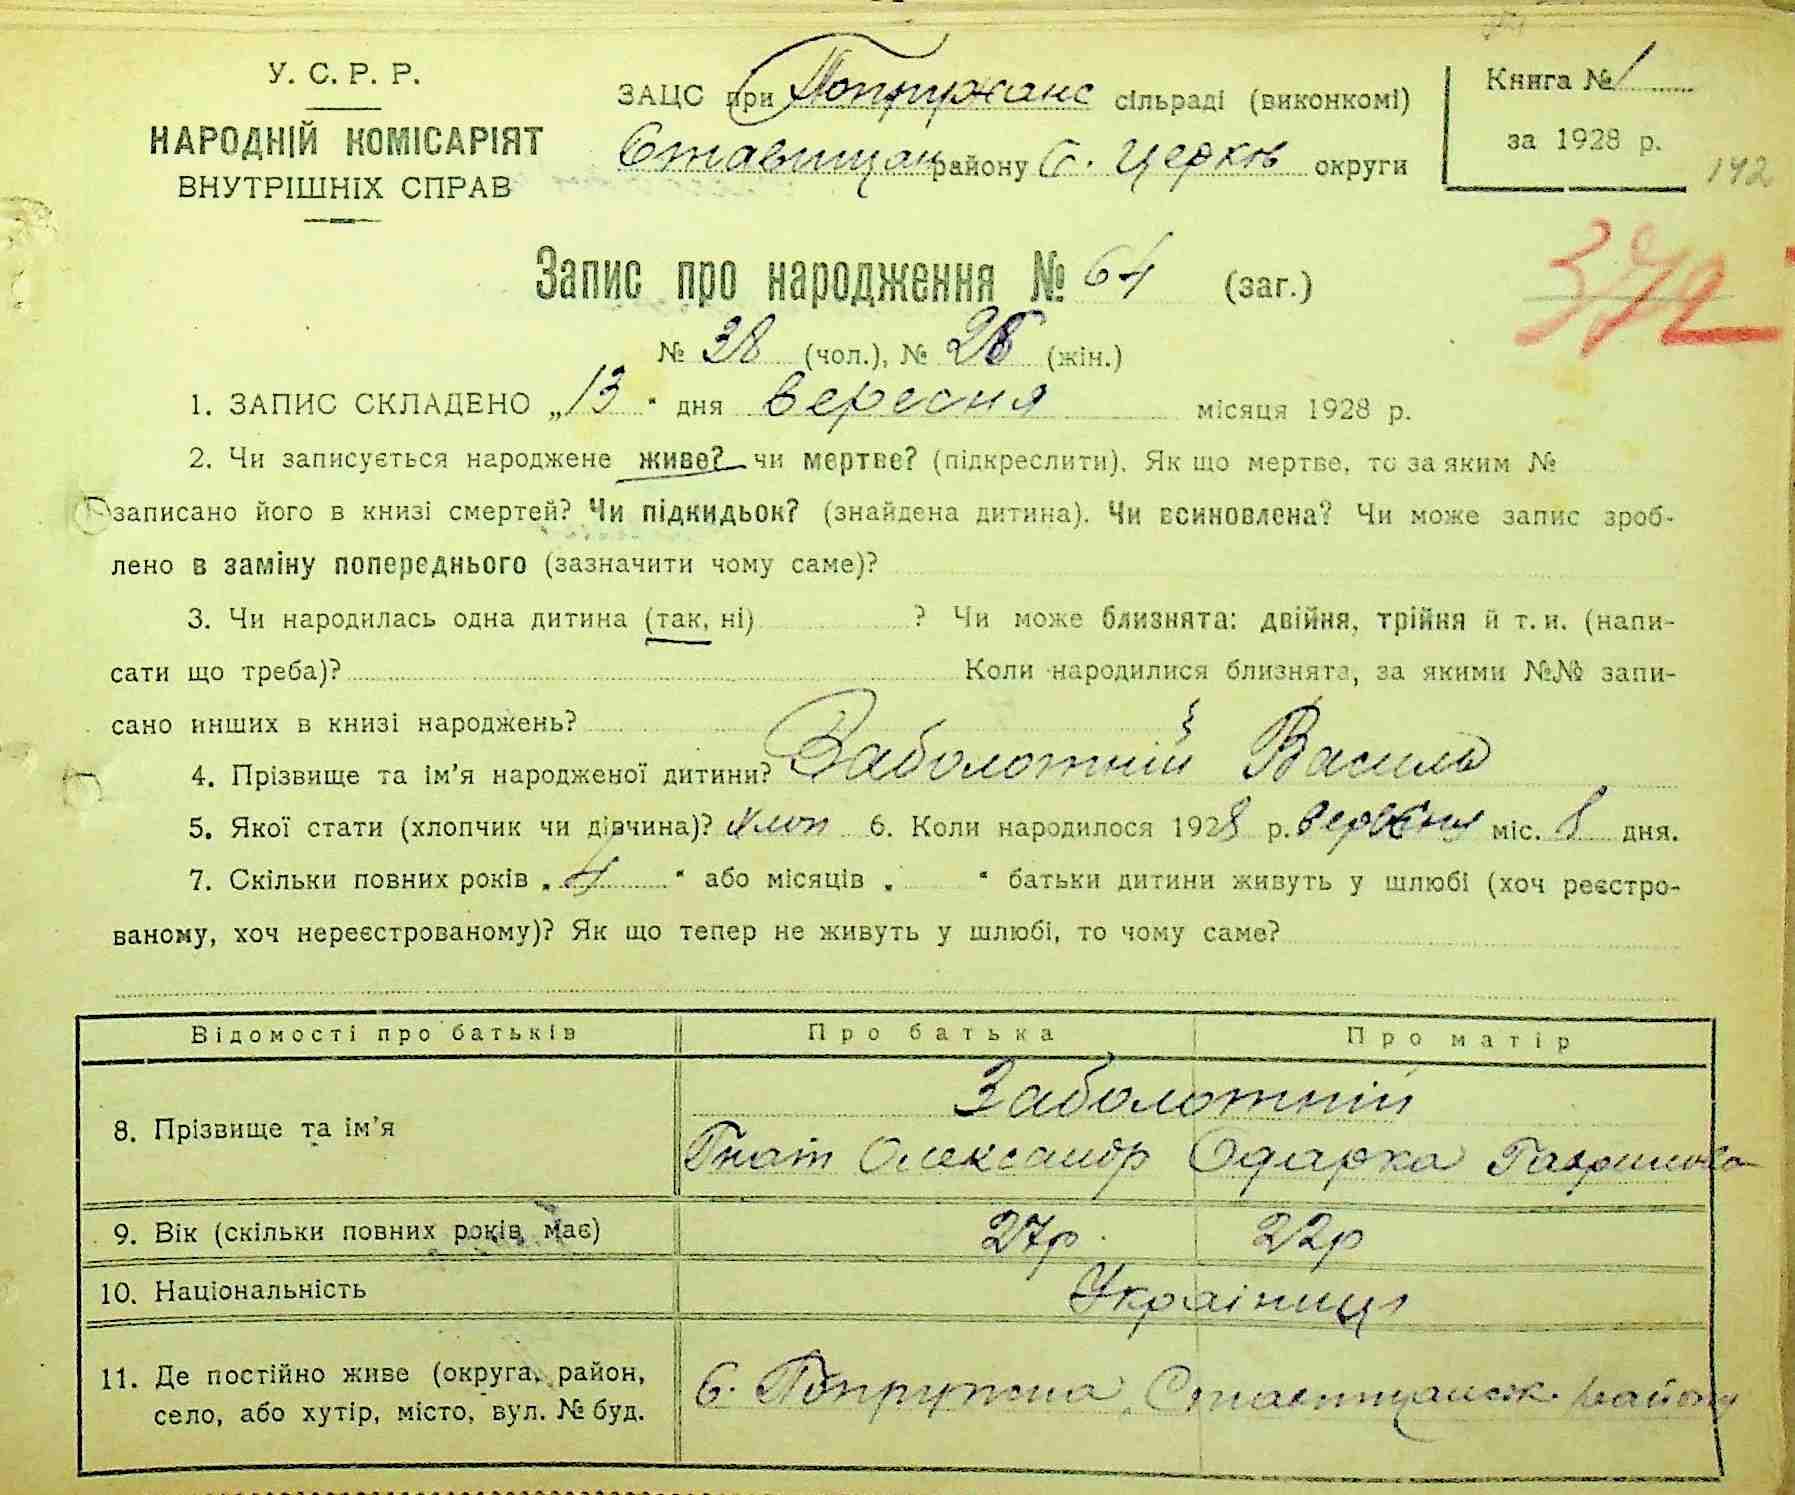 У. С. Р. Р.
НАРОДНІЙ КОМІСАРІЯТ
ВНУТРІШНІХ СПРАВ
ЗАЦС при Попружанс сільраді (виконкомі)
Ставищан району Б. Церков округи
Книга № 1
за 1928 р.
142
Запис про народження № 64 (заг.)
372
№ 38 (чол.), № 26 (жін.)
1. ЗАПИС СКЛАДЕНО „13" дня вересня місяця 1928 р.
2. Чи записується народжене живе? чи мертве? (підкреслити). Як що мертве, то за яким №
записано його в книзі смертей? Чи підкидьок? (знайдена дитина). Чи всиновлена? Чи може запис зроб-
лено в заміну попереднього (зазначити чому саме)?
3. Чи народилась одна дитина (так, ні) ? Чи може близнята: двійня, трійня й т. и. (напи-
сати що треба)? Коли народилися близнята, за якими №№ запи-
сано инших в книзі народжень?
4. Прізвище та ім'я народженої дитини? Заболотній Василь
5. Якої стати (хлопчик чи дівчина)? хлоп 6. Коли народилося 1928 р. вересня міс. 8 дня.
7. Скільки повних років „4" або місяців „ " батьки дитини живуть у шлюбі (хоч реєстро-
ваному, хоч нереєстрованому)? Як що тепер не живуть у шлюбі, то чому саме?
Відомості про батьків Про батька Про матір
8. Прізвище та ім'я Заболотній
Гнат Олександр Одарка Гаврилова
9. Вік (скільки повних років має) 27р. 22р
10. Національність Українці
11. Де постійно живе (округа, район,
село, або хутір, місто, вул. № буд.
С. Попружна Ставищанськ. району